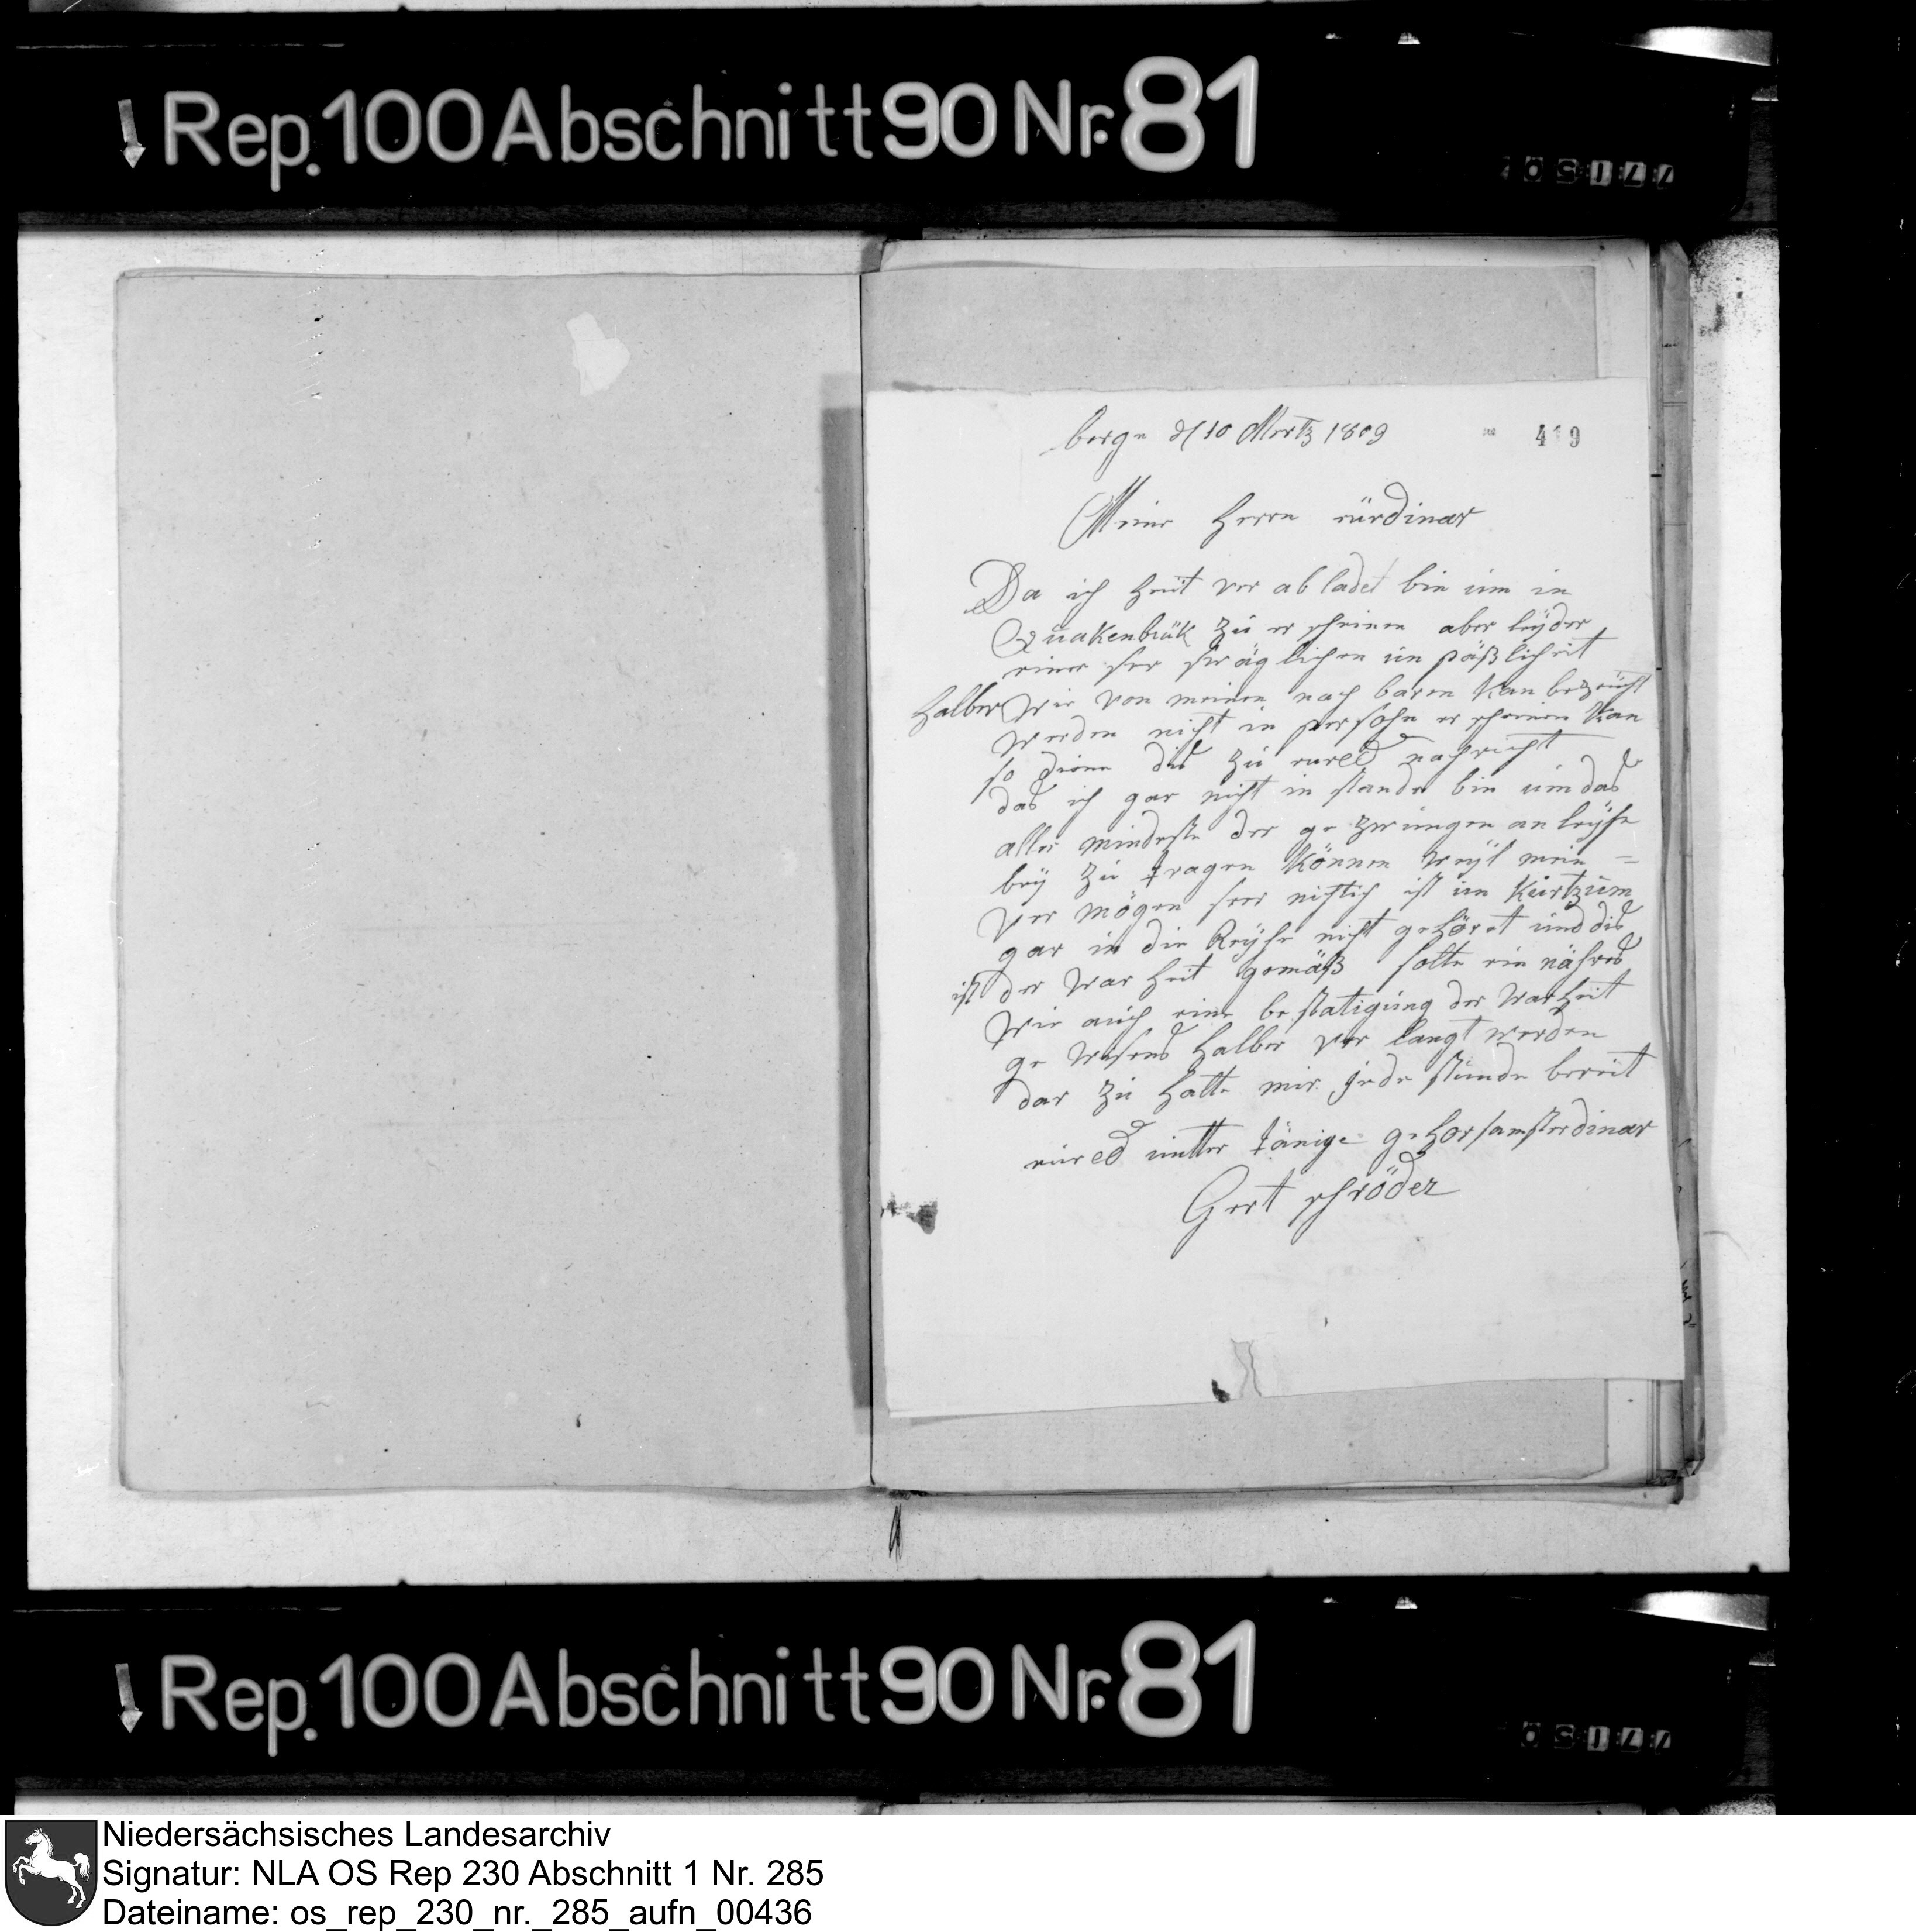 Rep. 100 Abschnitt 90 Nr. 81
berge d 10 Mertz 1809
419
Meine Herrn eürdiner
Da ich Heüt vor ab ladet bin üm in
Quakenbrük zü er scheinen aber leÿder
einer ser kläglichen ün päßlicheit
Halber wie von meinen nach baren kan bezeücht
werden nicht in persohn er scheinen kan
so diene dis zü nachricht
das ich gar nicht in stande bin üm das
aller mindeste der ge zwüngen an leÿhe
beÿ zü tragen können weÿl mein =
ver mögen seer nichtich ist ün kürtzüm
gar in die Reÿhe nicht gehöret ünd dis
ist der war Heit gemäß solte ein nähres
wie aüch eine be statigüng der warheit
ge wisens Halber ver langt werden
dar zü Halte mir jede stünde bereit
ünter tänige gehorsamster diner
Gert schröder
Rep. 100 Abschnitt 90 Nr. 81
Niedersächsisches Landesarchiv
Signatur: NLA OS Rep 230 Abschnitt 1 Nr. 285
Dateiname: os_rep_230_nr._285_aufn_00436